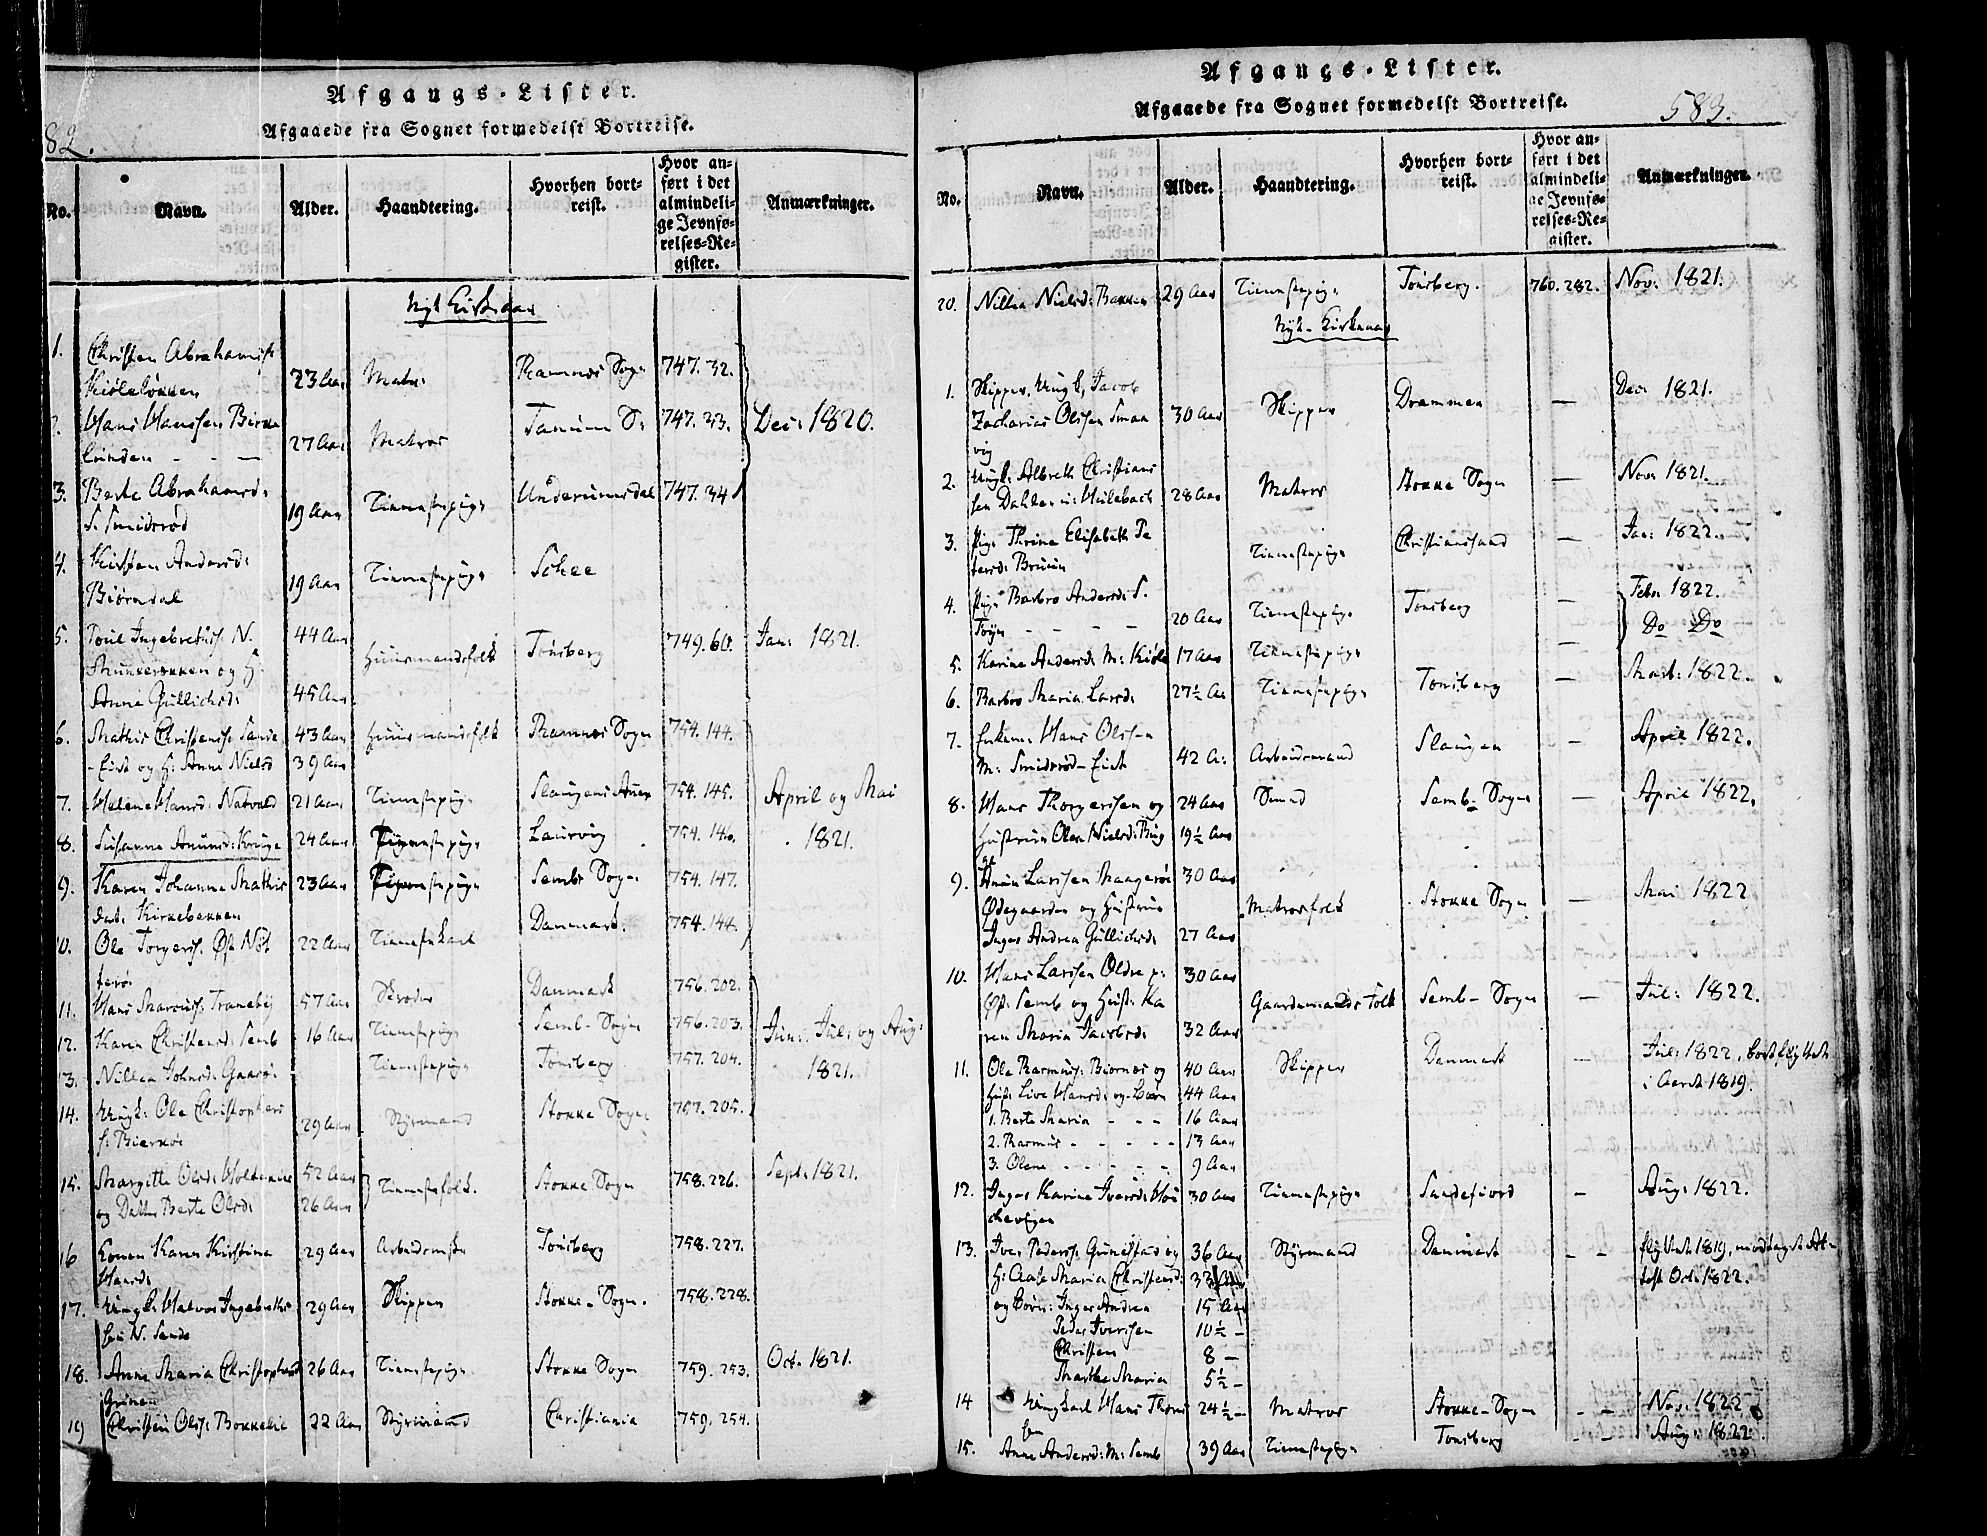 82.
Afgangs-Lister.
Afgaaede fra Sognet formedelst Bortreise.
No. Navn. Alder. Haandtering. Hvorhen bortreist. Hvor anført i det almindelige Jevnførelses-Register. Anmærkninger.
Nyt Kirkeaar
1. Christen Abrahams.
23 Aar Matr: Ramnes Sogn 747. 32.
2. Hans Hanssen Birke
linden - - - 27 Aar Matros Tanum S: 747. 33. Dec: 1820.
3. Berte Abrahamsd:
S. Smidsrød 19 Aar Tienestepige Underumsdal 747. 34
4. Kirsten Andersd:
Biørndal 19 Aar Tienestepige Schee
5. Poul Ingebretss. N. 44 Aar
og H: Huusmandsfolk Tønsberg 749. 60. Jan: 1821.
Anne Gullichsd: 45 Aar
6. Mathis Christens. Sande 43 Aar Huusmandsfolk Ramnes Sogn 754. 144.
-Eist og H: Anne Nielsd 39 Aar
7. Helene Hansd: Natvald 21 Aar Tienestepige Slaugens 754. 145. April og Mai
8. Susanne Amunds: 24 Aar Tienestepige Laurvig 754. 146. 1821.
9. Karen Johanne Mathis 23 Aar Tienestepige Sembs Sogn 754. 147.
dat: Kirkebakken
10. Ole Torgers. Øst Nøt 22 Aar Tienestekarl Danmark. 754. 144.
terø.
11. Hans Tranebÿ 57 Aar Skrædder Danmark 756. 202.
12. Karen Christensd: Semb 16 Aar Tienestepige Semb- Sogn 756. 203. Jun: Jul: og Aug:
13. Nillea Johnsd: Gaasøe Tienestepige Tønsberg 757. 204. 1821.
14. Ungk: Ole Christophers
s. Biernøe 29 Aar Styrmand Stokke Sogn 757. 205.
15. Margitte Olsd: 52 Aar Tienestefolk. Stokke Sogn 758. 226. Sept: 1821.
og Datter Berte Olsd: 26 Aar
16 Konen Karen Kirstine 29 Aar Tønsberg 758. 227.
Hansd:
17. Ungk: Halvor Ingebreths 29 Aar Skipper Stokke- Sogn. 758. 228.
sen N. Sande
18. Anne Maria Christophersd 26 Aar Tienestepige Stokke Sogn 759. 253. Oct: 1821.
19 Christen Ols: 22 Aar Styrmand Christiania 759. 254.
583.
Afgangs-Lister.
Afgaaede fra Sognet formedelst Bortreise.
No. Navn. Alder. Haandtering. Hvorhen bortreist. Hvor anført i det almindelige Jevnførelses-Register. Anmærkninger.
20. Nillea Nielsd: Bakken 29 Aar Tienestepige Tønsberg. 760. 282. Nov: 1821.
Nyt- Kirkeaar
1. Skipper, Ungk, Jacob
Zacharias Olssen Smaa 30 Aar Skipper Drammen — Dec: 1821.
vig
2. Ungk: Albreth Christians
sen Dahlen 28 Aar Matros Stokke Sogn — Nov: 1821.
3. Pige Thrine Elisabeth Pe Tienestepige Christianssand — Jan: 1822.
tersd: Bruun
4. Pige Barbro Andersd: S. Febr: 1822.
Tveÿn - - - - 20 Aar Tienestepige Tønsberg — Do Do
5. Karine Andersd: M: Kiøle 17 Aar Tienestepige —
6. Barbro Maria Larsd: 27½ Aar Tienestepige Tønsberg — Mart: 1822.
7. Enkem: Hans Olssen
M: Smidsrød-Eiet 42 A: Arbeidsmand Slaugen — April 1822.
8. Hans Thorgerssen og 24 Aar Smed Semb- Sogn — April 1822.
Hustrue Olea Nielsd: Bug 19½ Aar
ge
9. Amun Larssen Maagerøe 30 Aar
Ødegaarden og Hustrue Matrosfolk Stokke Sogn — Mai 1822
Inger Andrea Gullichsd: 27 Aar
10. Hans Larssen Oldre p: 30 Aar
Øst: Semb og Hust: Ka Gaardmands Folk Semb- Sogn — Jul: 1822.
ren Maria Jacobsd: 32 Aar
11. Ole Rasmus: Biørnes og 40 Aar Skipper Danmark — Jul: 1822, bortflyttet
Hust: Live Hansd: og Børn 44 Aar i Aaret 1819.
1. Berte Maria - - - 16 Aar
2. Rasmus - - - - - 13 Aar
3. Olene - - - - - 9 Aar
12. Inger Karine Iversd: 30 Aar Tienestepige Sandefiord - Aug: 1822.
13. Iver Peders: og 36 Aar Styrmand Danmark - - flyttet 1819, modtaget At-
H: Aase Maria Christensd: 33 Aar test Oct: 1822.
og Børn: Inger Andrea 15 Aar
Peder Iverssen 10½ -
Christen 8 -
Marthe Maria 5½ -
14 Ungkarl Hans Thors 24½ - Matros Stokke- Sogn - - Nov: 1822
sen
15. Anne Andersd: M: Semb 39 Aar Tienestepige Tønsberg - - Aug: 1822.